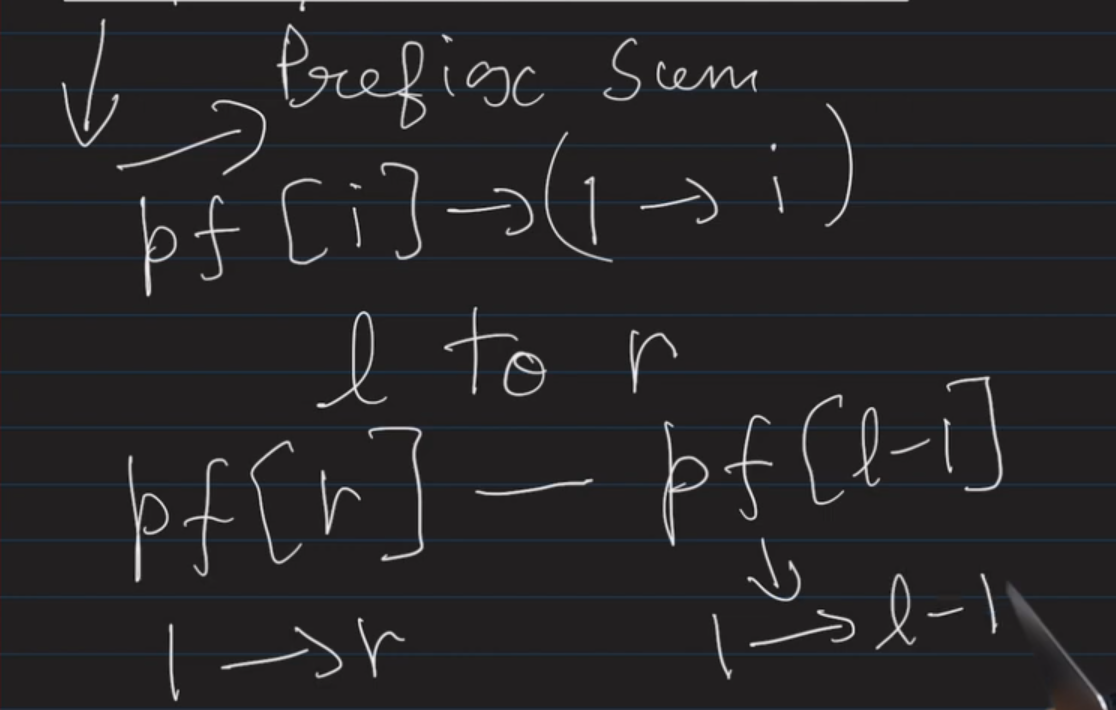 Prefix Sum
pf[i] → (1 → i)
l to r
pf[r] — pf[l-1]
1 → r 1 → l-1